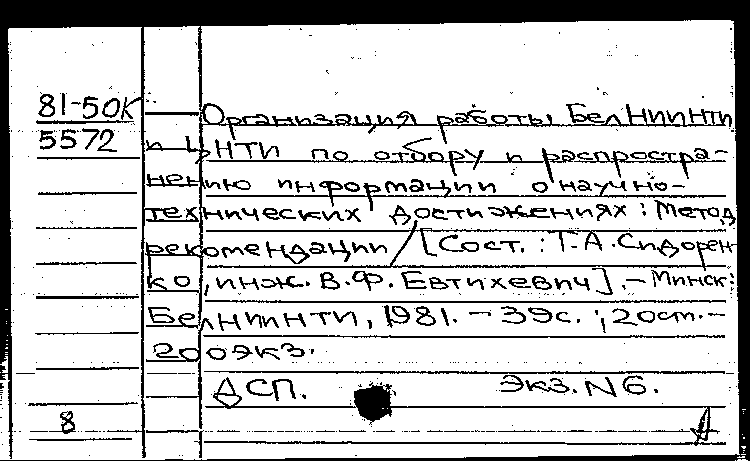 81-50К
5572
Организация работы БелНИИНТИ
и ЦНТИ по отбору и распростра-
нению информации о научно-
технических достижениях : Метод
рекомендации / [Сост. : Т. А. Сидорен
ко, инж. В. Ф. Евтихевич]. - Минск:
БелНИИНТИ, 1981. - 39с. ; 20см. -
200экз.
ДСП. Экз. N 6.
8 А